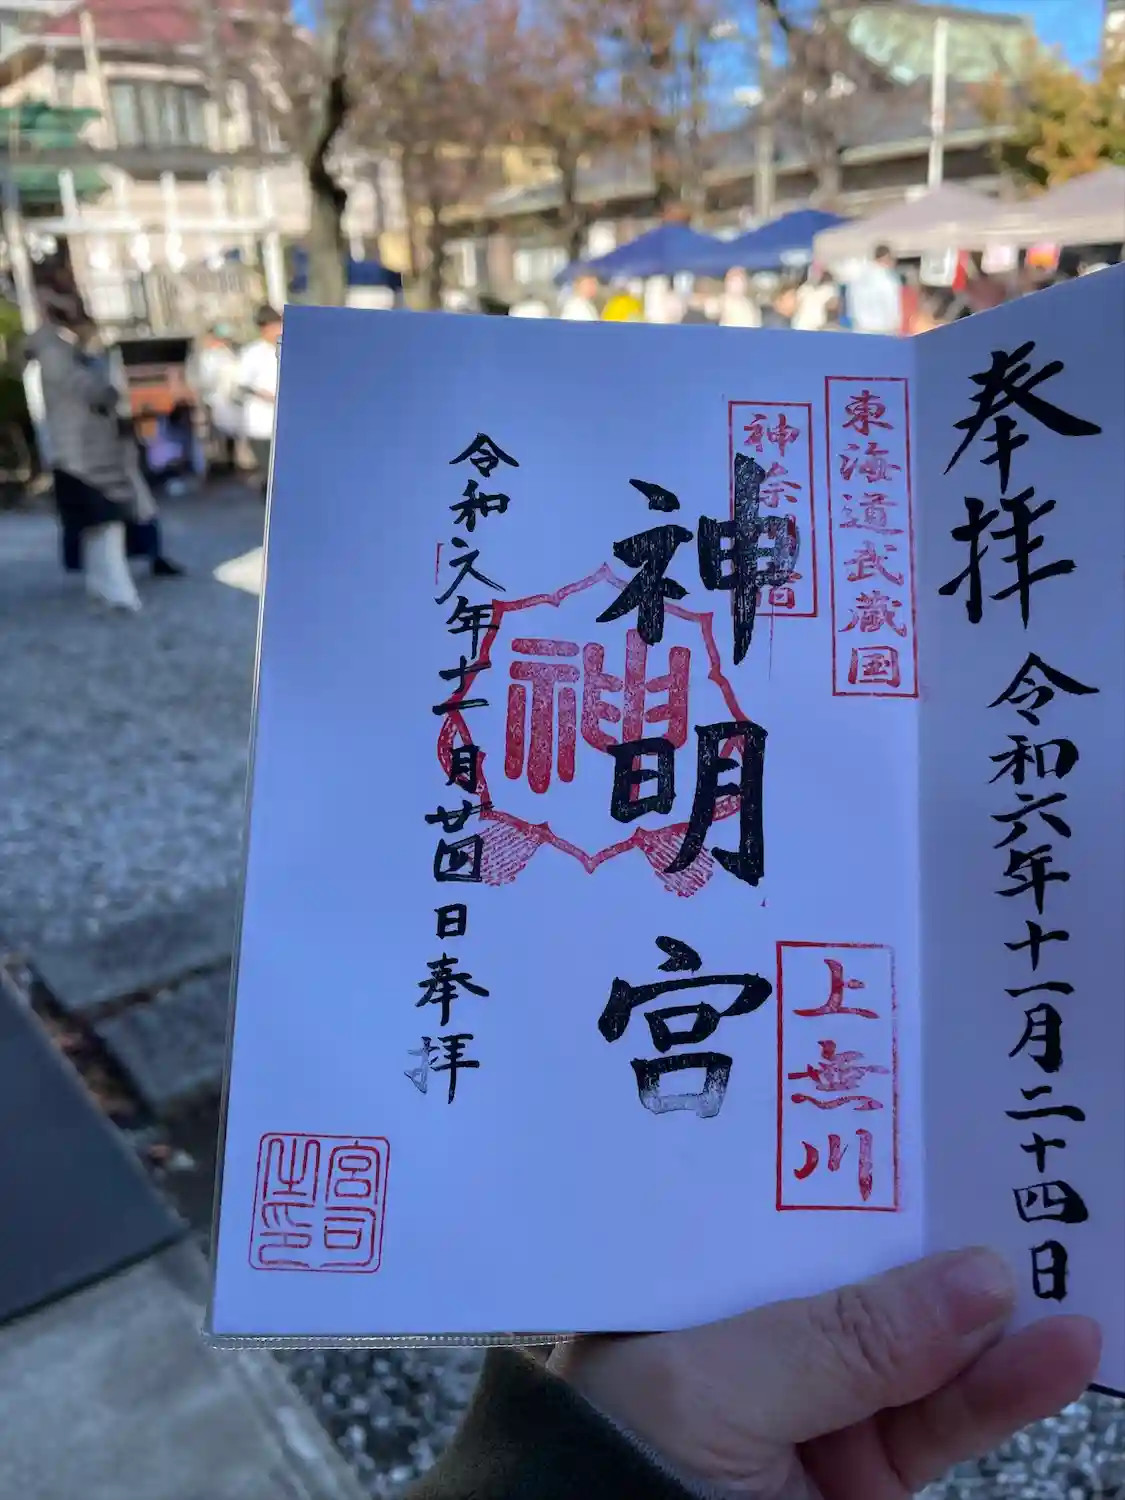 奉拝
令和六年十一月二十四日
東海道武蔵国
神奈川宿
神明宮
神
上無川
令和六年十一月廿四日奉拝
宮司
之印